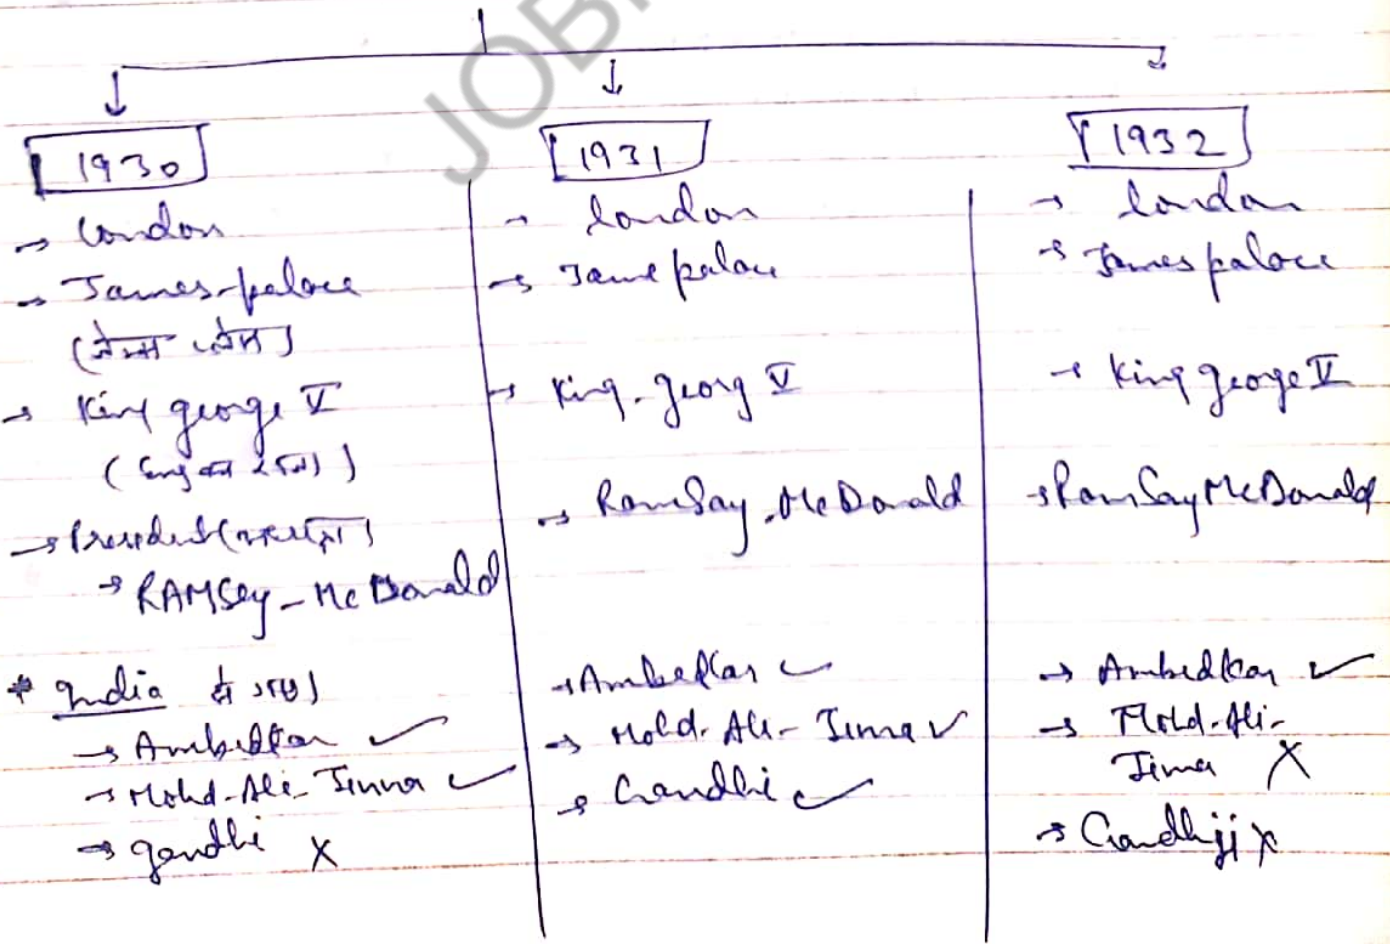 JOB
1930
→ London
→ James-palace
→ King george V
→ President (
→ RAMSey - Mc Donald
* India से गए)
→ Ambedkar ✓
→ Mohd-Ali-Jinna ✓
→ gandhi X
1931
→ London
→ Jame palace
→ King. georg V
→ RamSay. Mc Donald
→ Ambedkar ✓
→ Mohd. Ali- Jinna ✓
→ Gandhi ✓
1932
→ London
→ James palace
→ King george V
→ RamSay Mc Donald
→ Ambedkar ✓
→ Mohd-Ali-
Jinna X
→ Gandhiji X